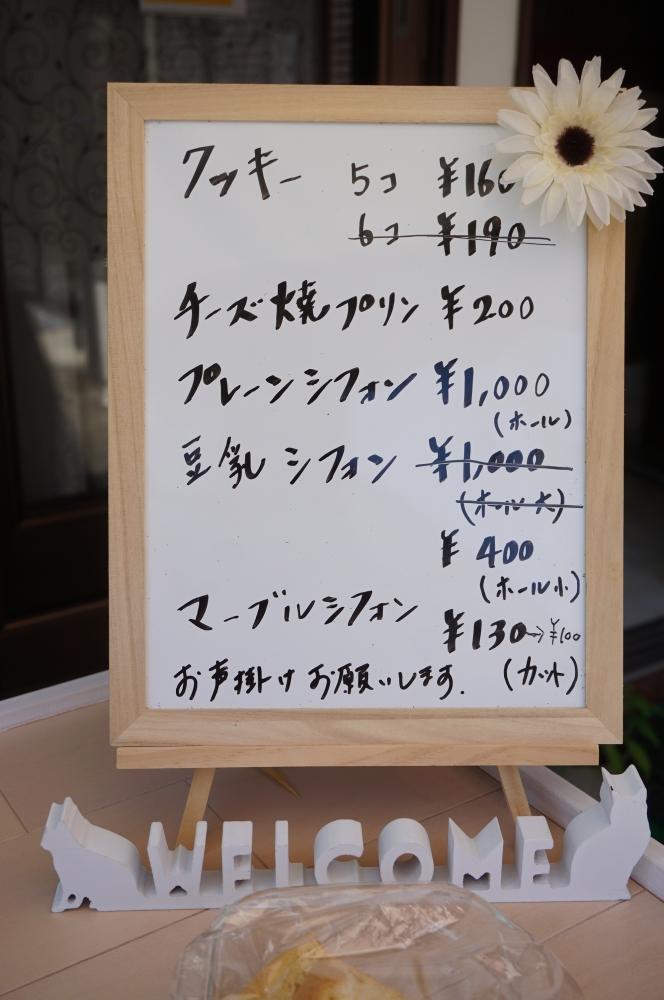 クッキー 5コ ¥160
6コ ¥190
チーズ焼プリン ¥200
プレーンシフォン ¥1,000
(ホール)
豆乳シフォン ¥1,000
(ホール大)
¥400
(ホール小)
マーブルシフォン ¥130→¥100
(カット)
お声掛けお願いします.
WELCOME